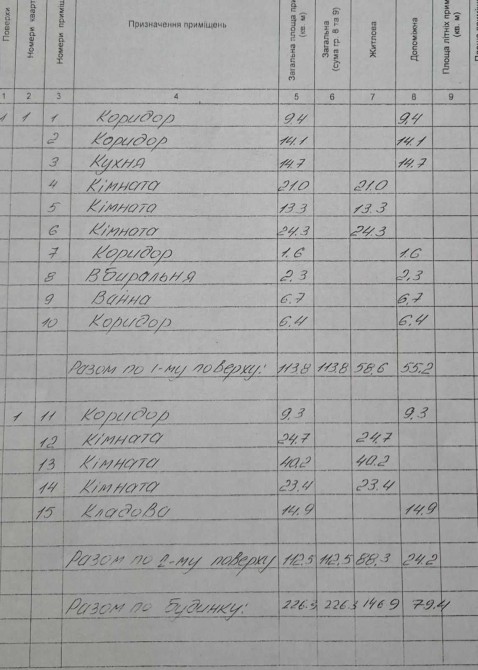 Поверхи
Номери кварт
Номери приміщ
Призначення приміщень
Загальна площа при (кв. м)
Загальна (сума гр. 8 та 9)
Житлова
Допоміжна
Площа літніх прим (кв. м)
1 2 3 4 5 6 7 8 9
1 1 1 Коридор 9,4 9,4
2 Коридор 14.1 14.1
3 Кухня 14.7 14.7
4 Кімната 21.0 21.0
5 Кімната 13.3 13.3
6 Кімната 24.3 24.3
7 Коридор 1.6 1.6
8 Вбиральня 2,3 2,3
9 Ванна 6,7 6,7
10 Коридор 6.4 6.4
Разом по 1-му поверху: 113.8 113.8 58,6 55.2
1 11 Коридор 9,3 9,3
12 Кімната 24.7 24.7
13 Кімната 40.2 40.2
14 Кімната 23.4 23.4
15 Кладова 14.9 14.9
Разом по 2-му поверху 112.5 112.5 88.3 24.2
Разом по будинку: 226.3 226.3 146 9 79.4